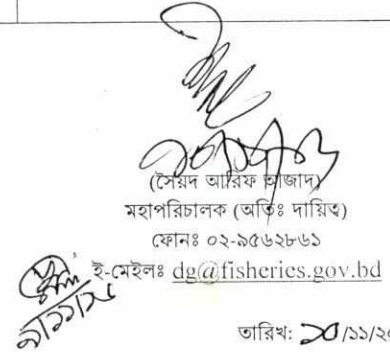 (সৈয়দ আরিফ আজাদ)
মহাপরিচালক (অতিঃ দায়িত্ব)
ফোনঃ ০২-৯৫৬২৮৬১
ই-মেইলঃ dg@fisheries.gov.bd
তারিখ: ১০/১১/২০